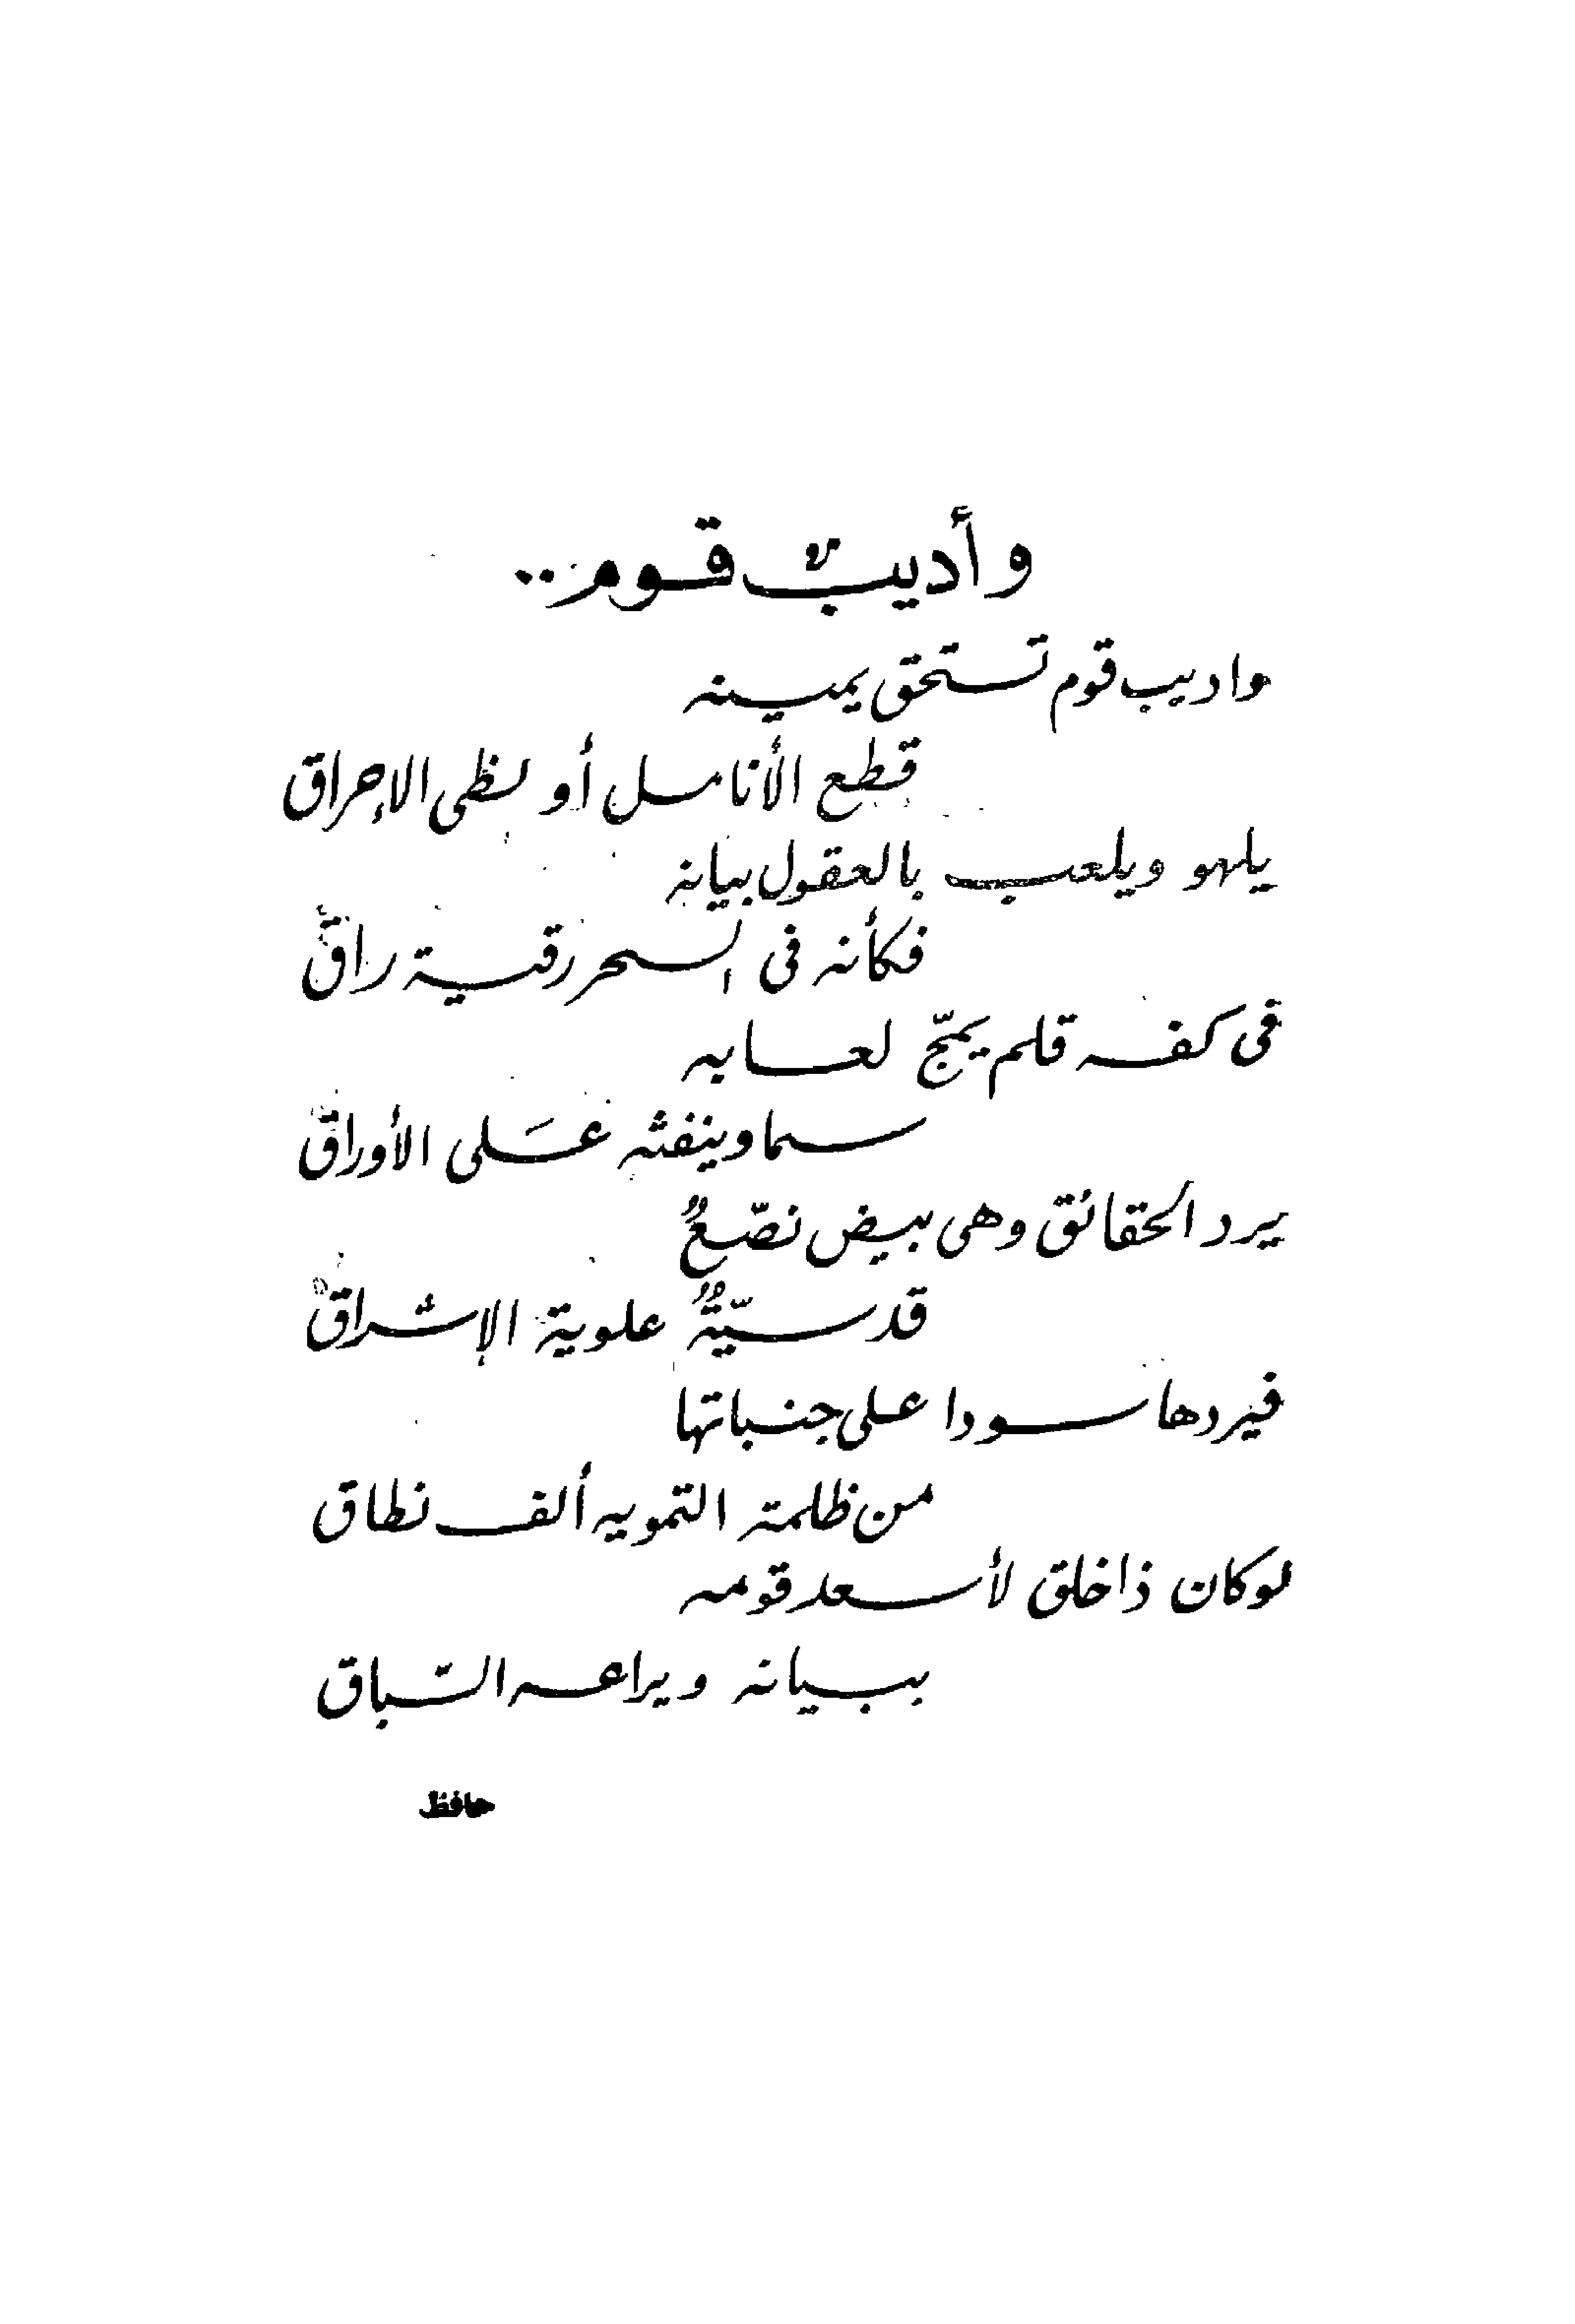 وأديبٌ قوم..
واديب قوم تستحق يمينه
قطع الأنامل أو لظى الإحراق
يلهو ويلعب بالعقول بيانه
فكأنه فى السحر رقية راق
فى كفه قلم يمجّ لعابه
سما وينفثه عَلى الأوراق
يرد الحقائق وهى بيض نصّعٌ
قدسيّةٌ علوية الإشراق
فيردها سودا على جنباتها
من ظلمة التمويه ألف نطاق
لو كان ذا خلق لأسعد قومه
ببيانه ويراعه السّباق
حافظ